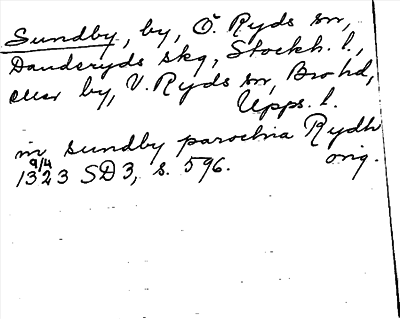 Sundby, by, Ö. Ryds sn,
Danderyds skg, Stockh. l.,
eller by, V. Ryds sn, Bro hd,
Upps. l.
in sundby parochia Rydh
9/4
1323 SD 3, s. 596. orig.